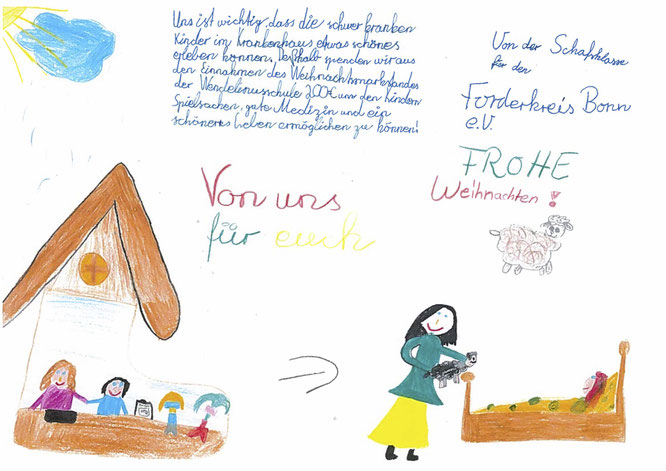 Uns ist wichtig, dass die schwer kranken
Kinder im Krankenhaus etwas schönes
erleben können, deßhalb spenden wir aus
den Einnahmen des Weihnachtsmarkstandes
der Wendelinusschule 200€ um den Kindern
Spielsachen, gute Medizin und ein
schöneres Leben ermöglichen zu können!
Von der Schafsklasse
für den
Förderkreis Bonn
e.V.
FROHE
Weihnachten!
Von uns
für euch